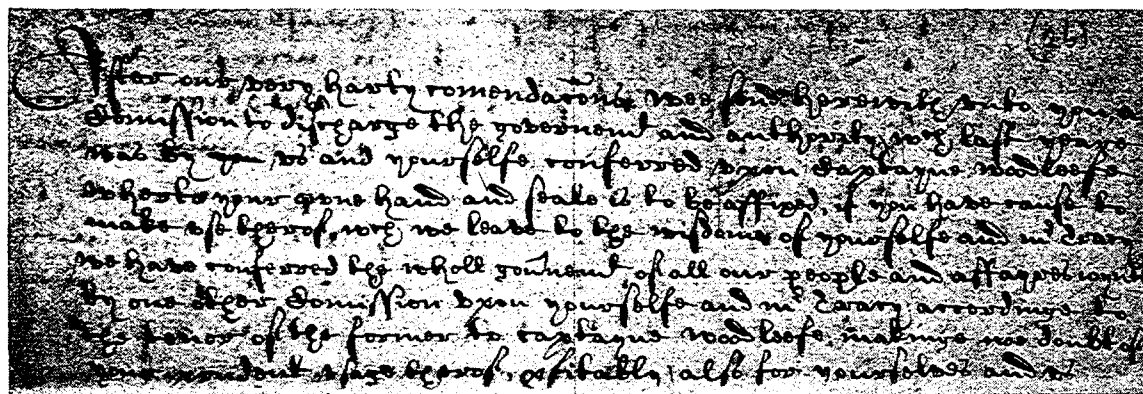 (26)
After our very harty comendacons wee send herewith unto you a
Comission to discharge the governemt and authority wch last yeare
was by you us and yourselfe conferred upon Captayne Woodleefe
wherto your owne hand and seale is to be affixed, if you have cause to
make use therof, wch we leave to the wisdome of yourselfe and mr Tracy
we have conferred the wholl govnemt of all our people and affayres
by one other Comission upon yourselfe and mr Tracy accordinge to
the tenor of the former to Captayne Woodleefe, makinge noe doubt of
your prudent usage therof, pfitably also for yourselves and us